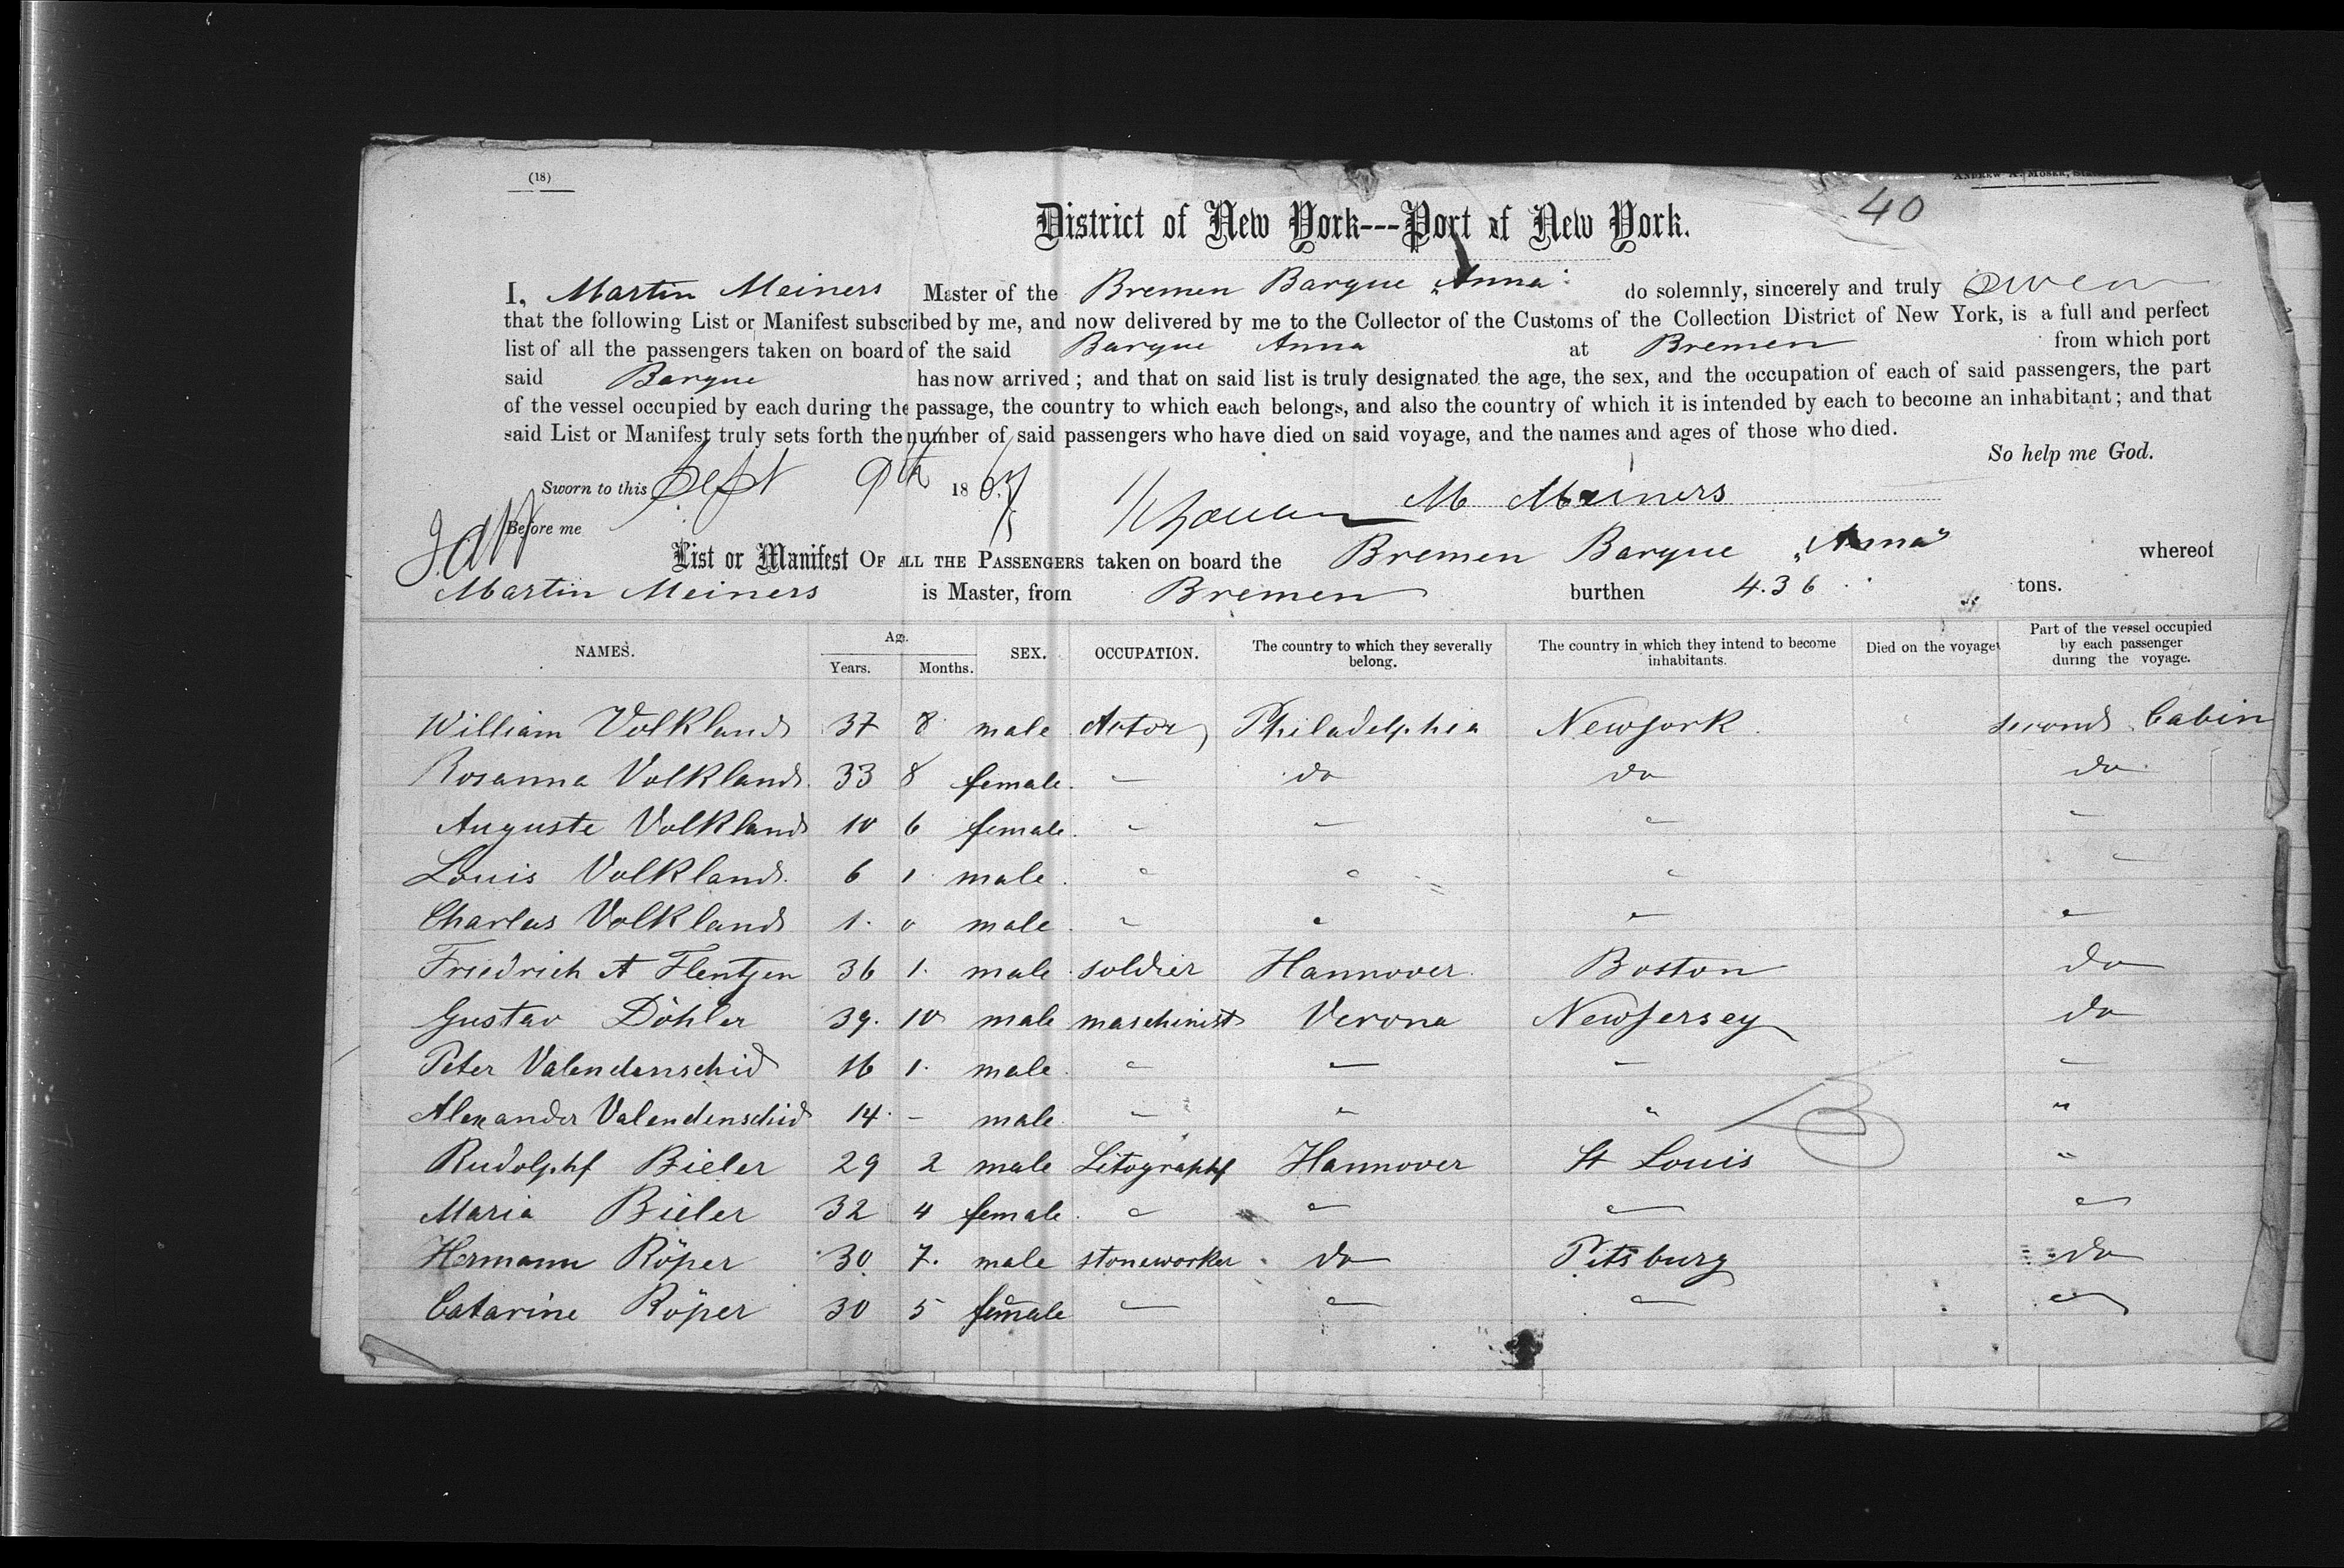 (18)
40
District of New York---Port of New York.
I, Martin Meiners Master of the Bremen Barque „Anna" do solemnly, sincerely and truly swear
that the following List or Manifest subscribed by me, and now delivered by me to the Collector of the Customs of the Collection District of New York, is a full and perfect
list of all the passengers taken on board of the said Barque Anna at Bremen from which port
said Barque has now arrived; and that on said list is truly designated the age, the sex, and the occupation of each of said passengers, the part
of the vessel occupied by each during the passage, the country to which each belongs, and also the country of which it is intended by each to become an inhabitant; and that
said List or Manifest truly sets forth the number of said passengers who have died on said voyage, and the names and ages of those who died.
So help me God.
Sworn to this Sept 9th 1867 M Meiners
Before me
List or Manifest OF ALL THE PASSENGERS taken on board the Bremen Barque „Anna" whereof
Martin Meiners is Master, from Bremen burthen 436 tons.
NAMES. Age. Years. Months. SEX. OCCUPATION. The country to which they severally belong. The country in which they intend to become inhabitants. Died on the voyage Part of the vessel occupied by each passenger during the voyage.
William Volkland 37 8 male Actor Philadelphia Newyork second Cabin
Rosanna Volkland 33 8 female — do do do
Auguste Volkland 10 6 female " " " "
Louis Volkland 6 1 male " " " "
Charles Volkland 1 0 male " " " "
Friedrich A Flentjen 36 1 male soldier Hannover Boston do
Gustav Döhler 39 10 male maschinist Verona NewJersey do
Peter Valendenschid 16 1 male " " " "
Alexander Valendenschid 14 - male " " " "
Rudolphf Bieler 29 2 male Litographf Hannover St Louis "
Maria Bieler 32 4 female " " " "
Hermann Röper 30 7 male stoneworker do Pitsburg do
Catarine Röper 30 5 female " " " "